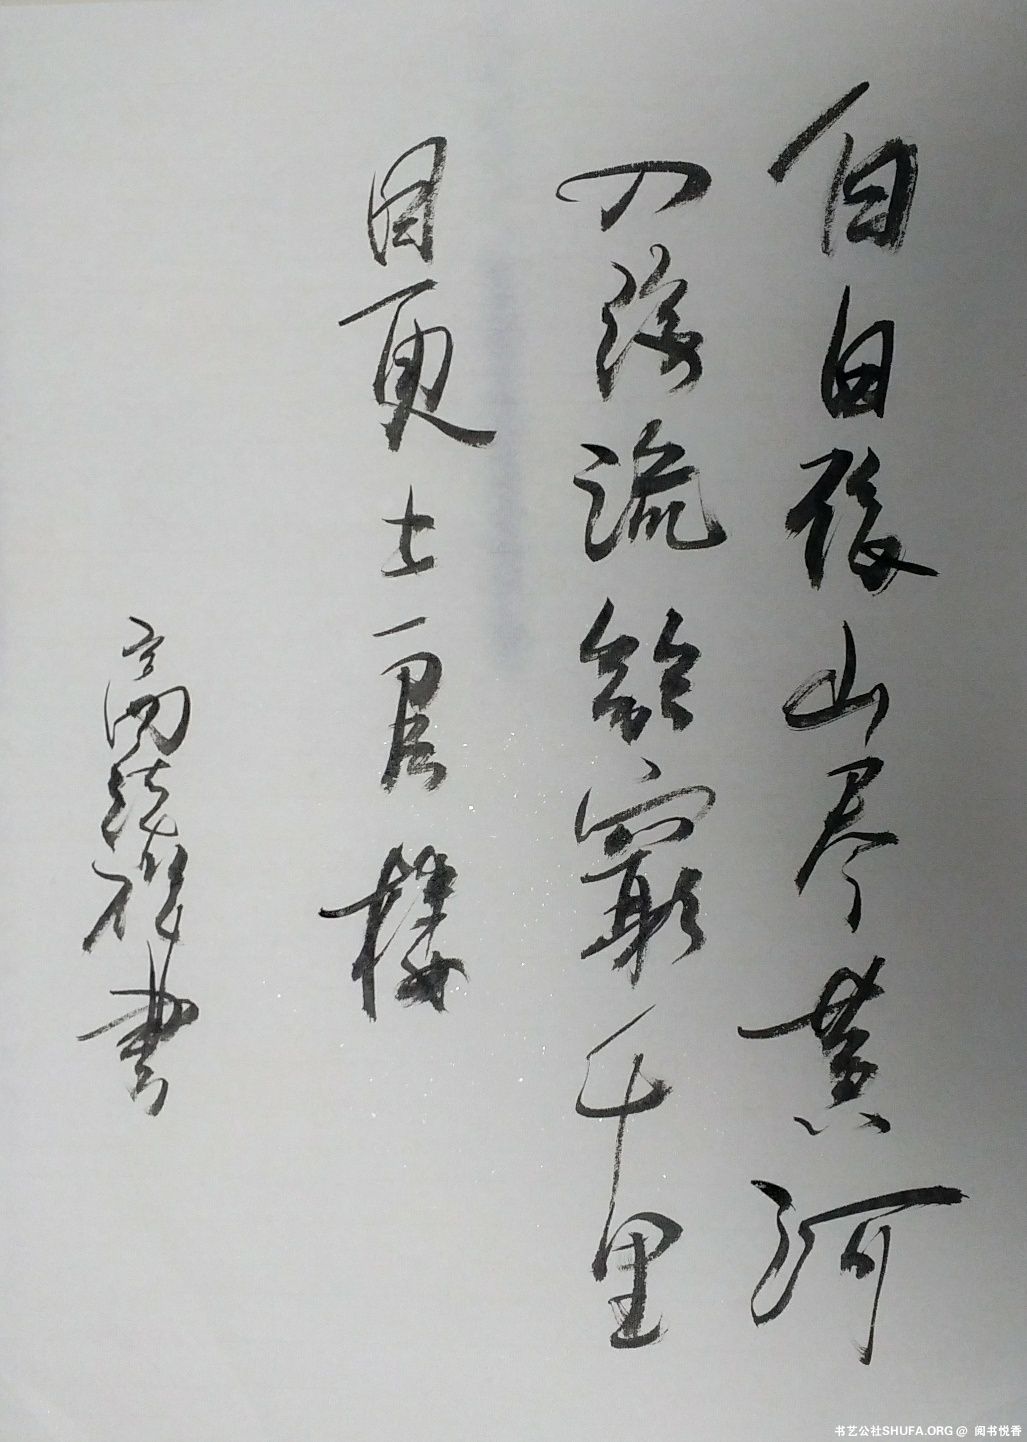 白日依山尽黄河
入海流欲窮千里
目更上一層楼
高書
书艺公社SHUFA.ORG @ 阅书悦香